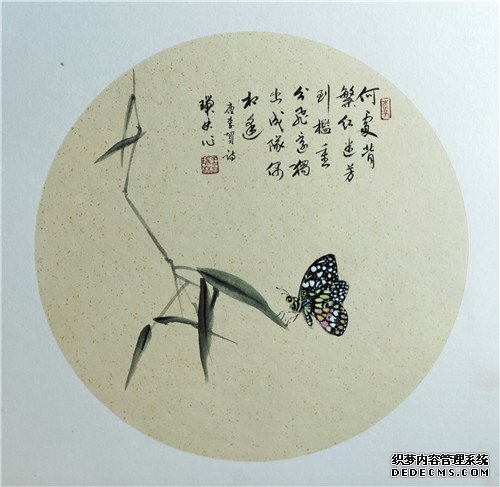 何處背
繁红迷芳
到槛重
分飛還獨
出成隊偶
相逢
唐李詩
织梦内容管理系统
DEDECMS.COM